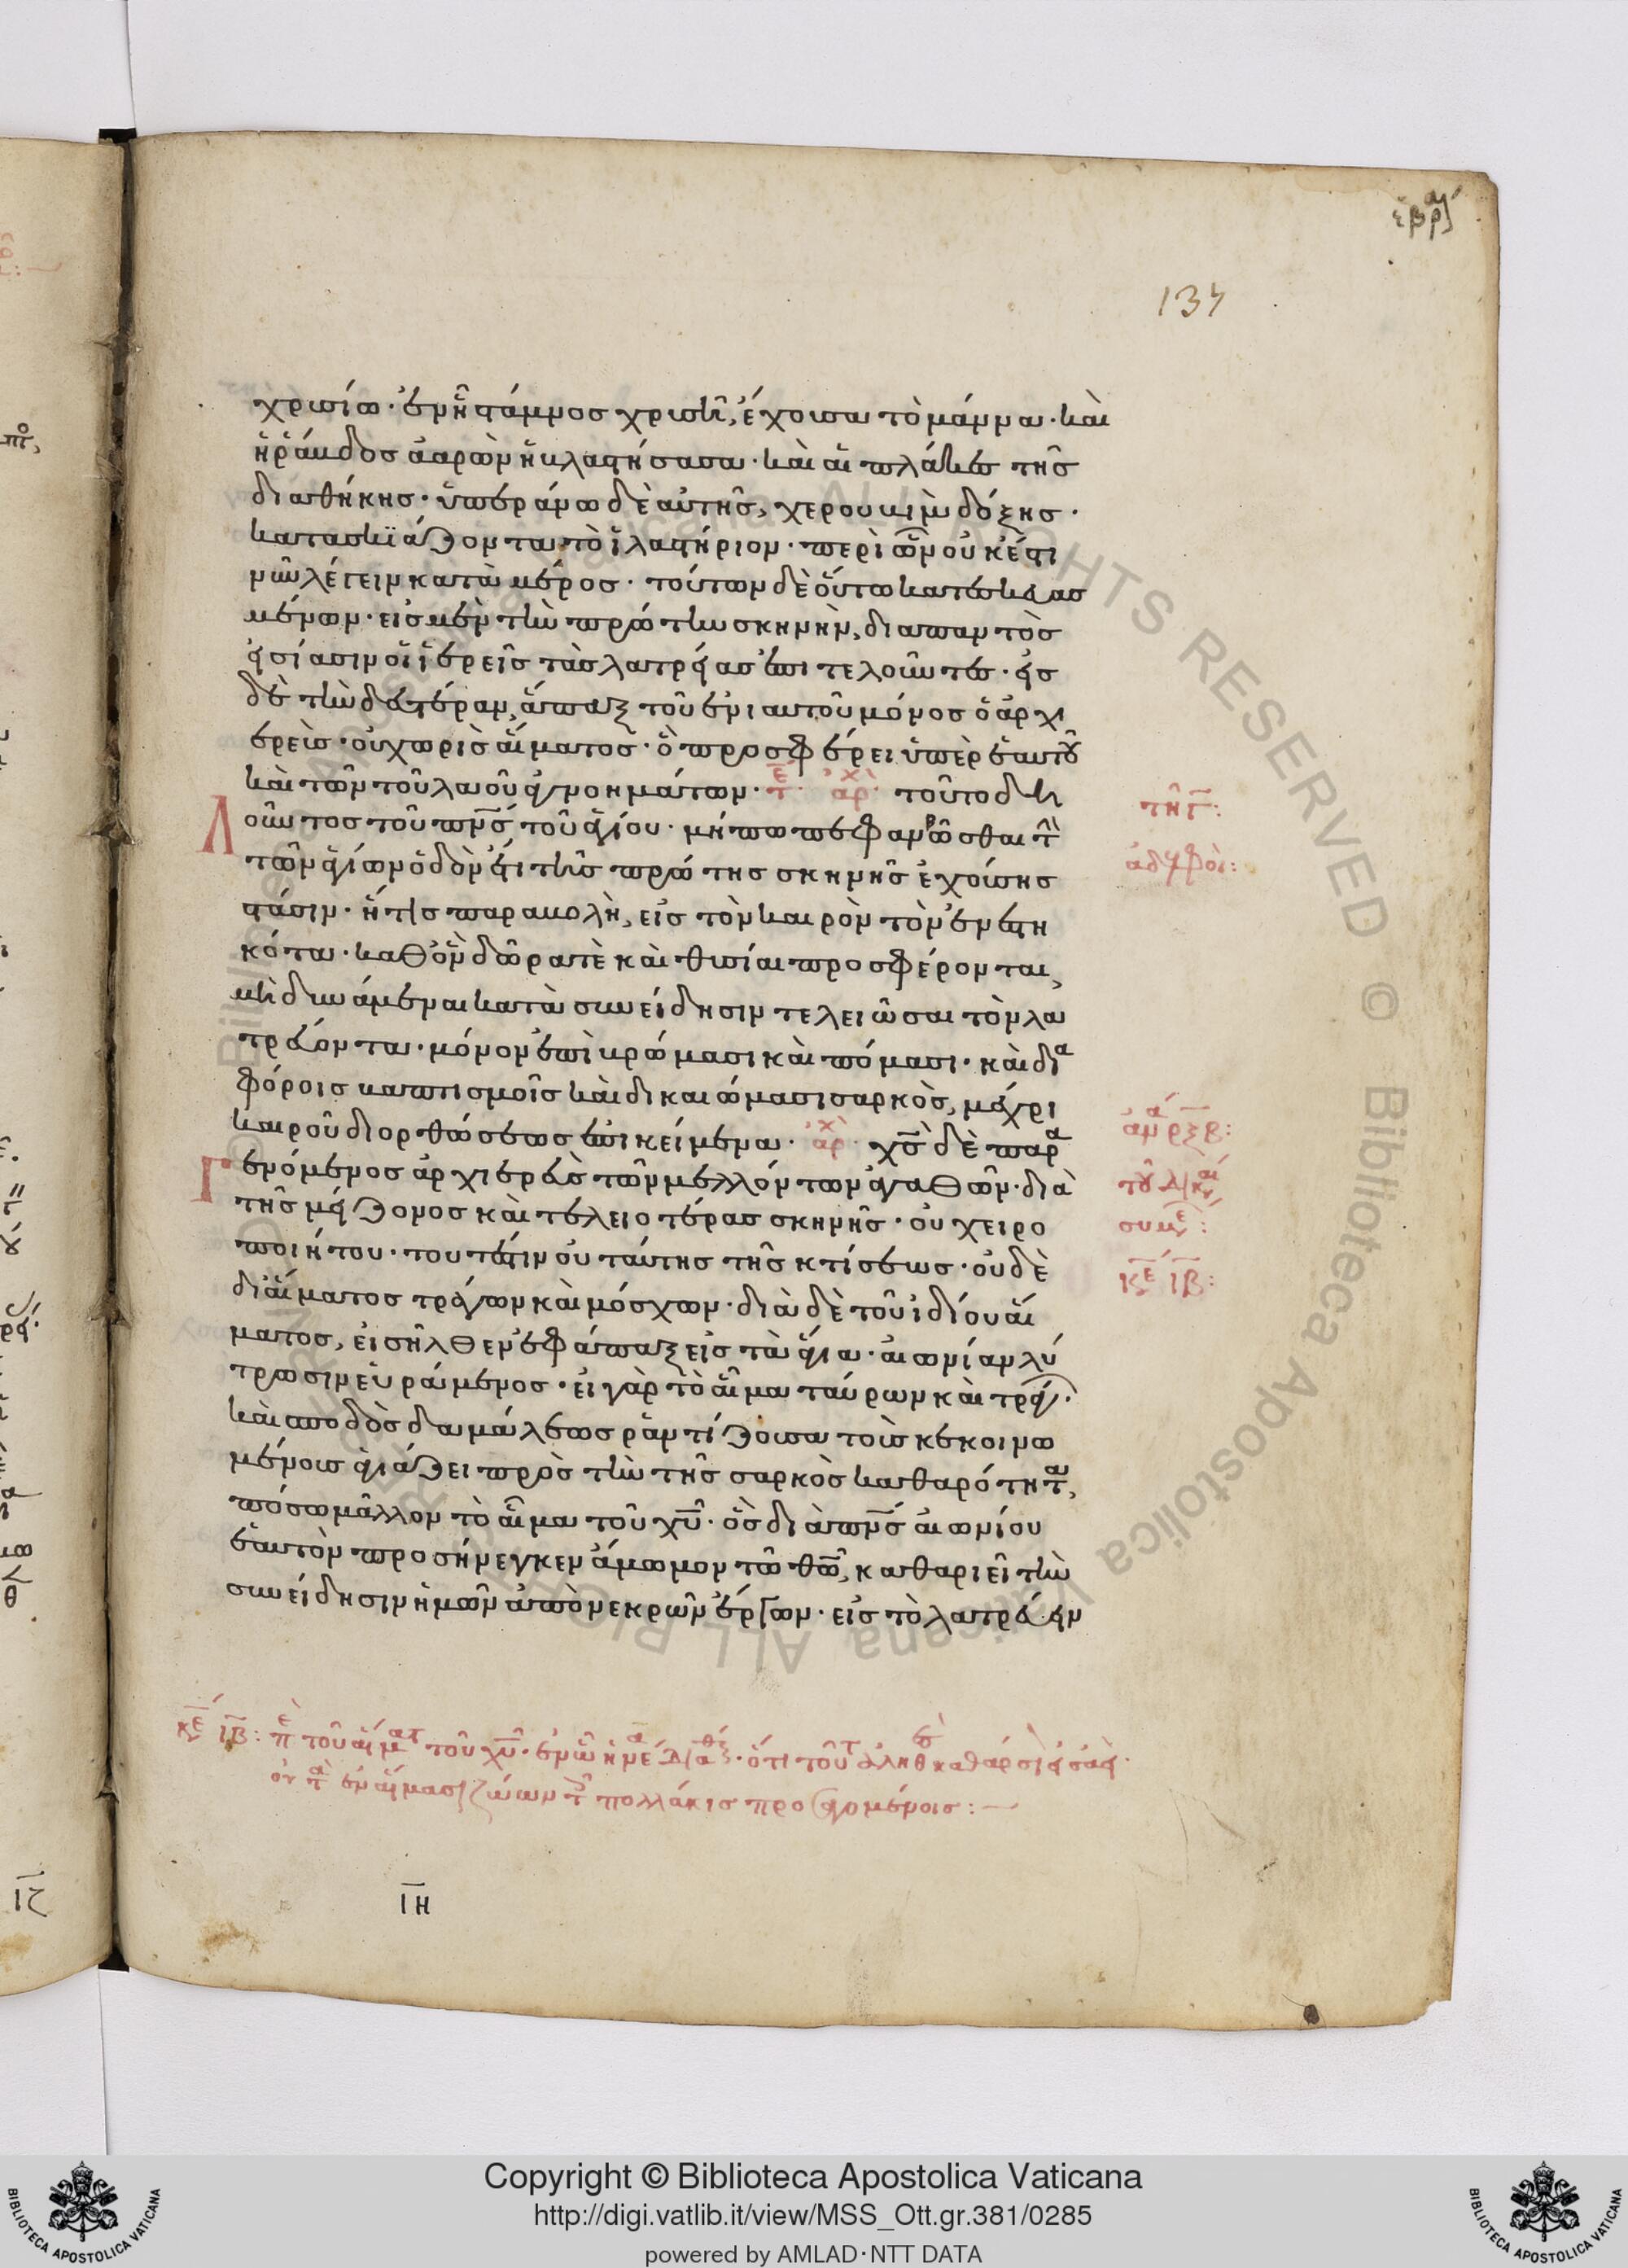 ἑβρ
134
χρυσίω· ἐν ἧ στάμνος χρυσῆ, ἔχουσα τὸ μάννα· καὶ
ἡ ῥάβδος ἀαρὼν ἡ βλαστήσασα· καὶ αἱ πλάκες τῆς
διαθήκης· ὑπεράνω δὲ αὐτῆς, χερουβὶμ δόξης·
κατασκϊάζοντα τὸ ἱλαστήριον· περὶ ὧν οὐκ ἔστι
νῦν λέγειν κατὰ μέρος· τούτων δὲ οὕτω κατεσκευασ
μένων· εἰς μὲν τὴν πρώτην σκηνὴν, διαπαντὸς
εἰσίασιν οἱ ἱερεῖς τὰς λατρείας ἐπιτελοῦντες· εἰς
δὲ τὴν δευτέραν, ἅπαξ τοῦ ἐνιαυτοῦ μόνος ὁ ἀρχι
ερεὺς· οὐ χωρὶς αἵματος· ὃ προσφέρει ὑπὲρ ἑαυτοῦ
καὶ τῶν τοῦ λαοῦ ἀγνοημάτων· τε ἀρχ τοῦτο δη
τῆ γ:
Λοῦντος τοῦ πνς τοῦ ἁγίου· μήπω πεφανερῶσθαι τὴν
ἀδελφοὶ:
τῶν ἁγίων ὁδὸν ἔτι τῆς πρώτης σκηνῆς ἐχούσης
στάσιν· ἥτις παραβολὴ, εἰς τὸν καιρὸν τὸν ἐνεστη
κότα· καθ' ὃν δῶρα τὲ καὶ θυσίαι προσφέρονται,
μὴ δυνάμεναι κατὰ συνείδησιν τελειῶσαι τὸν λα
τρεύοντα· μόνον ἐπὶ βρώμασι καὶ πόμασι· καὶ δια
φόροις βαπτισμοῖς καὶ δικαιώμασι σαρκὸς, μέχρι
καιροῦ διορθώσεως ἐπικείμενα· ἀρχ χς δὲ παρα
Γενόμενος ἀρχιερεὺς τῶν μελλόντων ἀγαθῶν· διὰ
τῆς μείζονος καὶ τελειοτέρας σκηνῆς· οὐ χειρο
ποιήτου· τουτέστιν οὐ ταύτης τῆς κτίσεως· οὐδὲ
κε ιβ:
δι' αἵματος τράγων καὶ μόσχων· διὰ δὲ τοῦ ἰδίου αἵ
ματος, εἰσῆλθεν ἐφάπαξ εἰς τὰ ἅγια· αἰωνίαν λύ
τρωσιν εὑράμενος· εἰ γὰρ τὸ αἷμα ταύρων καὶ τράγων·
καὶ σποδὸς δαμάλεως ῥαντίζουσα τοὺς κεκοινω
μένους ἁγιάζει πρὸς τὴν τῆς σαρκὸς καθαρότητα,
πόσω μᾶλλον τὸ αἷμα τοῦ χυ· ὃς διὰ πνς αἰωνίου
ἑαυτὸν προσήνεγκεν ἄμωμον τῶ θω, καθαριεῖ τὴν
συνείδησιν ἡμῶν ἀπὸ νεκρῶν ἔργων· εἰς τὸ λατρεύειν
κε ιβ: περὶ τοῦ αἵματ τοῦ χυ· ἐν ὧ ἡ νέα διαθ· ὅτι τοῦτ ἀληθ καθάρσι
οὐ τὰ ἐν αἵμασι ζώων τοῖς πολλάκις προσφερομένοις:
ιζ
ιη
Copyright © Biblioteca Apostolica Vaticana
http://digi.vatlib.it/view/MSS_Ott.gr.381/0285
powered by AMLAD·NTT DATA
BIBLIOTECA APOSTOLICA VATICANA
BIBLIOTECA APOSTOLICA VATICANA